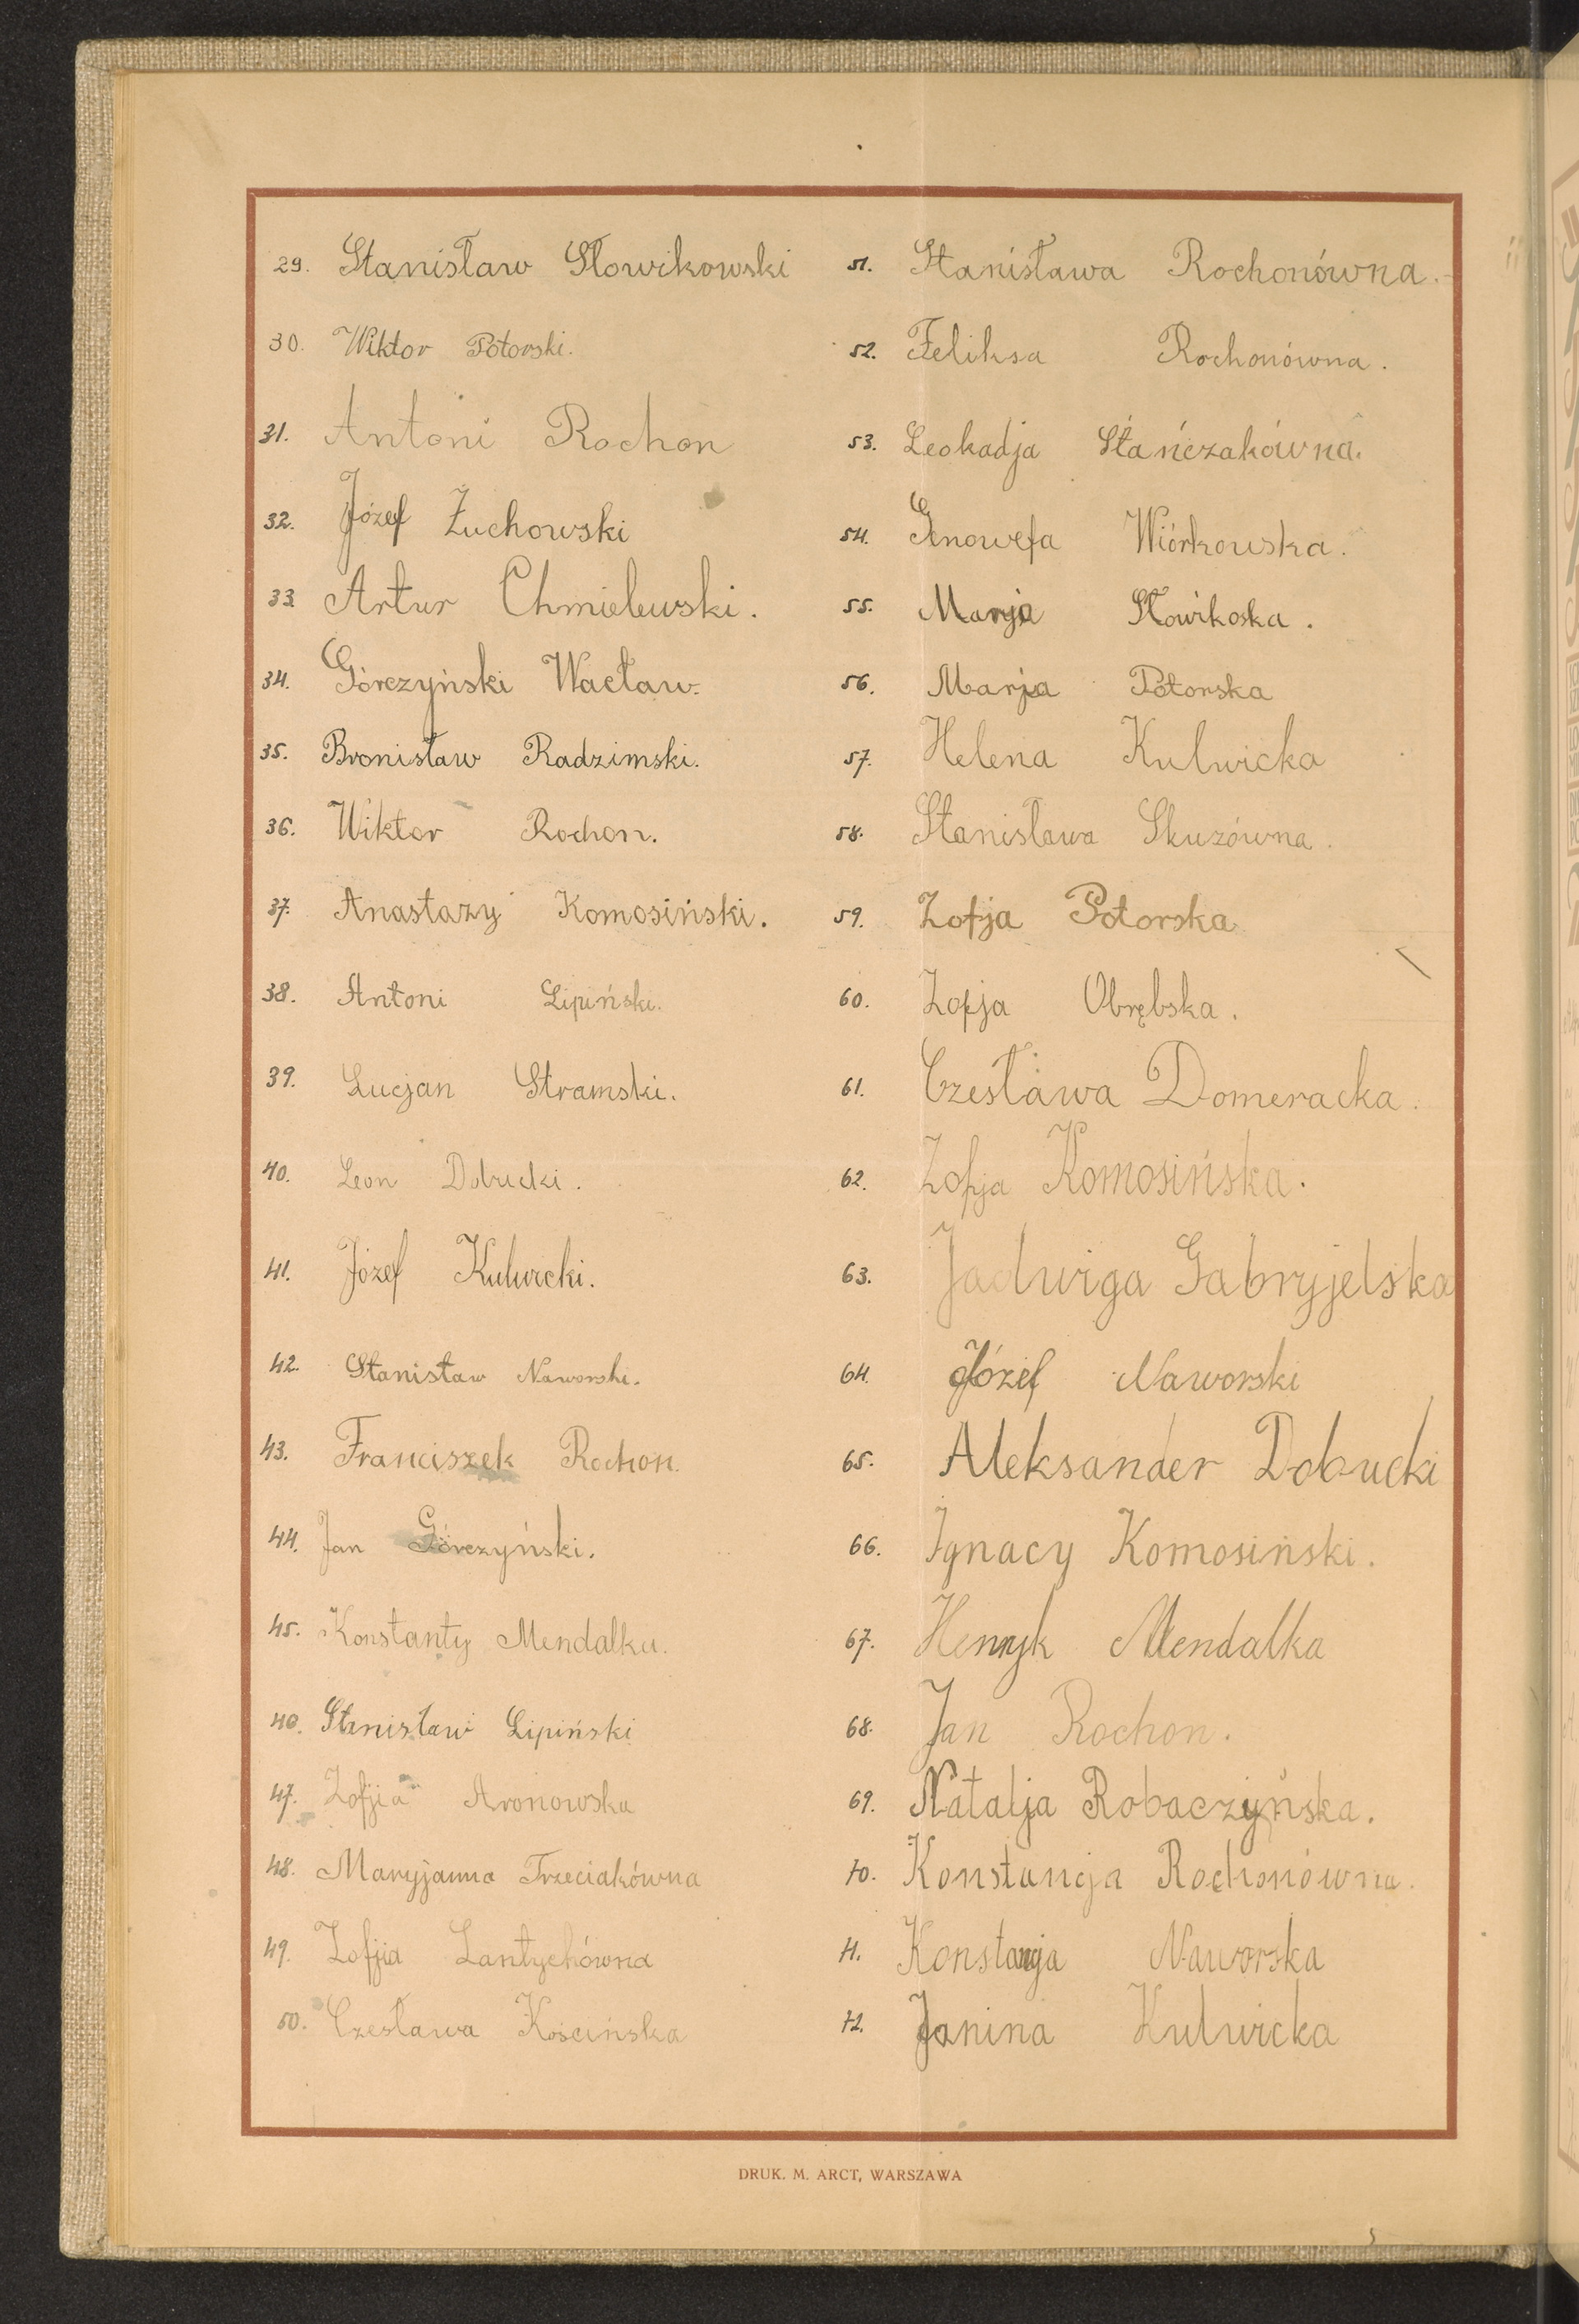 29. Stanisław Słowikowski
30. Wiktor Potorski.
31. Antoni Rochon
32. Józef Żuchowski
33. Artur Chmielewski.
34. Górczyński Wacław.
35. Bronisław Radzimski.
36. Wiktor Rochon.
37. Anastazy Komosiński.
38. Antoni Lipiński.
39. Lucjan Stramski.
40. Leon Dobucki.
41. Józef Kulwicki.
42. Stanisław Naworski.
43. Franciszek Rochon.
44. Jan Górczyński.
45. Konstanty Mendalka.
46. Stanisław Lipiński
47. Zofjia Aronowska
48. Maryjanna Trzeciakówna
49. Zofjia Lantychówna
50. Czesława Kościńska
51. Stanisława Rochonówna.
52. Feliksa Rochonówna.
53. Leokadja Stańczakówna.
54. Genowefa Wiórkowska.
55. Marja Słowikoska.
56. Marja Potorska
57. Helena Kulwicka
58. Stanisława Skuzówna.
59. Zofja Potorska
60. Zofja Obrębska.
61. Czesława Domeracka.
62. Zofja Komosińska.
63. Jadwiga Gabryjelska
64. Józef Naworski
65. Aleksander Dobucki
66. Ignacy Komosiński.
67. Henryk Mendalka
68. Jan Rochon.
69. Natalja Robaczyńska.
70. Konstancja Rochonówna.
71. Konstancja Naworska
72. Janina Kulwicka
DRUK. M. ARCT, WARSZAWA